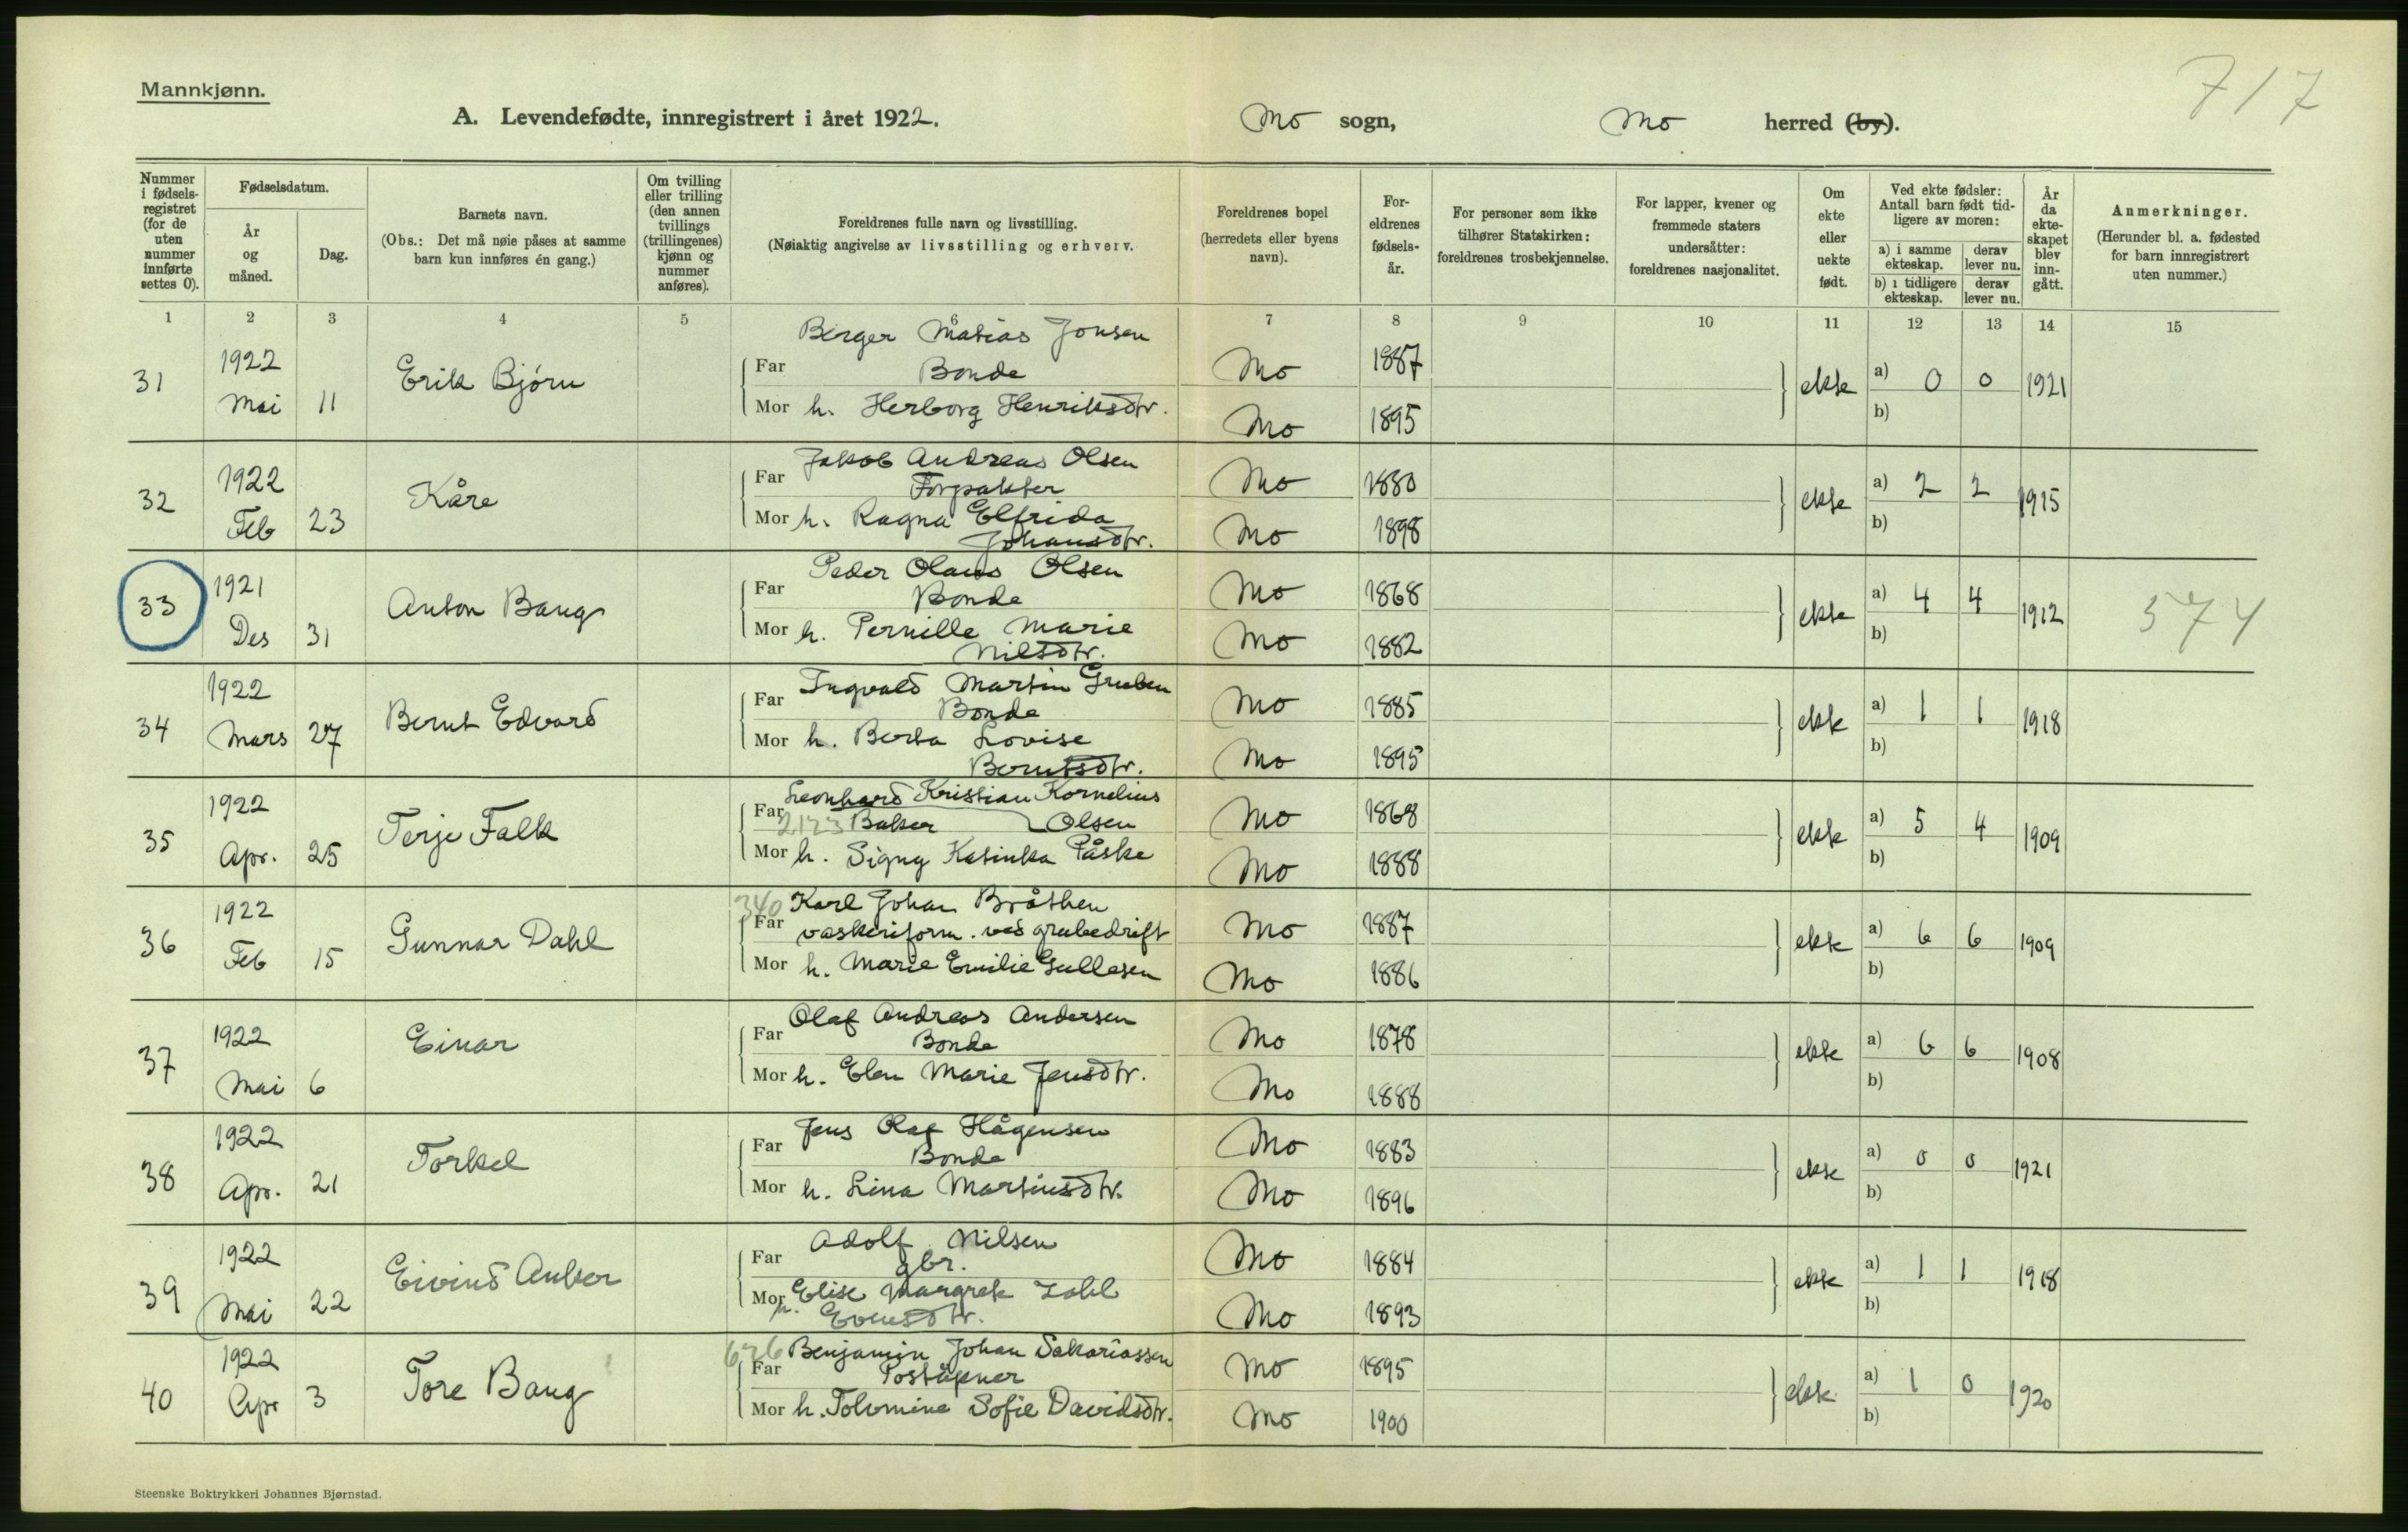 Mannkjønn.
717
A. Levendefødte, innregistrert i året 1922. Mo sogn, Mo herred (by).
Nummer i fødsels-registret (for de uten nummer innførte settes 0).
Fødselsdatum.
År og måned.
Dag.
Barnets navn.
(Obs.: Det må nøie påses at samme barn kun innføres én gang.)
Om tvilling eller trilling (den annen tvillings (trillingenes) kjønn og nummer anføres).
Foreldrenes fulle navn og livsstilling.
(Nøiaktig angivelse av livsstilling og erhverv.
Foreldrenes bopel (herredets eller byens navn).
For-eldrenes fødsels-år.
For personer som ikke tilhører Statskirken: foreldrenes trosbekjennelse.
For lapper, kvener og fremmede staters undersåtter: foreldrenes nasjonalitet.
Om ekte eller uekte født.
Ved ekte fødsler: Antall barn født tid-ligere av moren:
a) i samme ekteskap. derav lever nu.
b) i tidligere ekteskap. derav lever nu.
År da ekte-skapet blev inn-gått.
Anmerkninger.
(Herunder bl. a. fødested for barn innregistrert uten nummer.)
1 2 3 4 5 6 7 8 9 10 11 12 13 14 15
Berger Matias Jonsen
31 1922 Mai 11 Erik Bjórn Far Bonde Mo 1887 ekte a) 0 0 1921
Mor h. Herborg Henriksdtr. Mo 1895 b)
Jakob Andreas Olsen
32 1922 Feb 23 Kåre Far Forpakter Mo 1880 ekte a) 2 2 1915
Mor h. Ragna Elfrida Mo 1898 b)
Johansdtr.
Peder Olaus Olsen
33 1921 Des 31 Anton Bang Far Bonde Mo 1868 ekte a) 4 4 1912 574
Mor h. Pernille Marie Mo 1882 b)
Nilsdtr.
Ingvald Martin Gruben
34 1922 Mars 27 Bernt Edvard Far Bonde Mo 1885 ekte a) 1 1 1918
Mor h. Berta Lovise Mo 1895 b)
Berntsdtr.
Leonhard Kristian Kornelius
35 1922 Apr. 25 Terje Falk Far 2123 Baker Olsen Mo 1868 ekte a) 5 4 1909
Mor h. Signy Katinka Påske Mo 1888 b)
340 Karl Johan Bråthen
36 1922 Feb 15 Gunnar Dahl Far vaskeriform. ved grubedrift Mo 1887 ekte a) 6 6 1909
Mor h. Marie Emilie Gullesen Mo 1886 b)
Olaf Andreas Andersen
37 1922 Mai 6 Einar Far Bonde Mo 1878 ekte a) 6 6 1908
Mor h. Elen Marie Jensdtr. Mo 1888 b)
Jens Olaf Hågensen
38 1922 Apr. 21 Torkel Far Bonde Mo 1883 ekte a) 0 0 1921
Mor h. Lina Martinsdtr. Mo 1896 b)
Adolf Nilsen
39 1922 Mai 22 Eivind Anker Far gbr. Mo 1884 ekte a) 1 1 1918
Mor h. Elise Margrete Zahl Mo 1893 b)
626 Benjamin Johan Sakariassen
40 1922 Apr 3 Tore Bang Far Poståpner Mo 1895 ekte. a) 1 0 1920
Mor h. Tolvmine Sofie Davidsdtr. Mo 1900 b)
Steenske Boktrykkeri Johannes Bjørnstad.